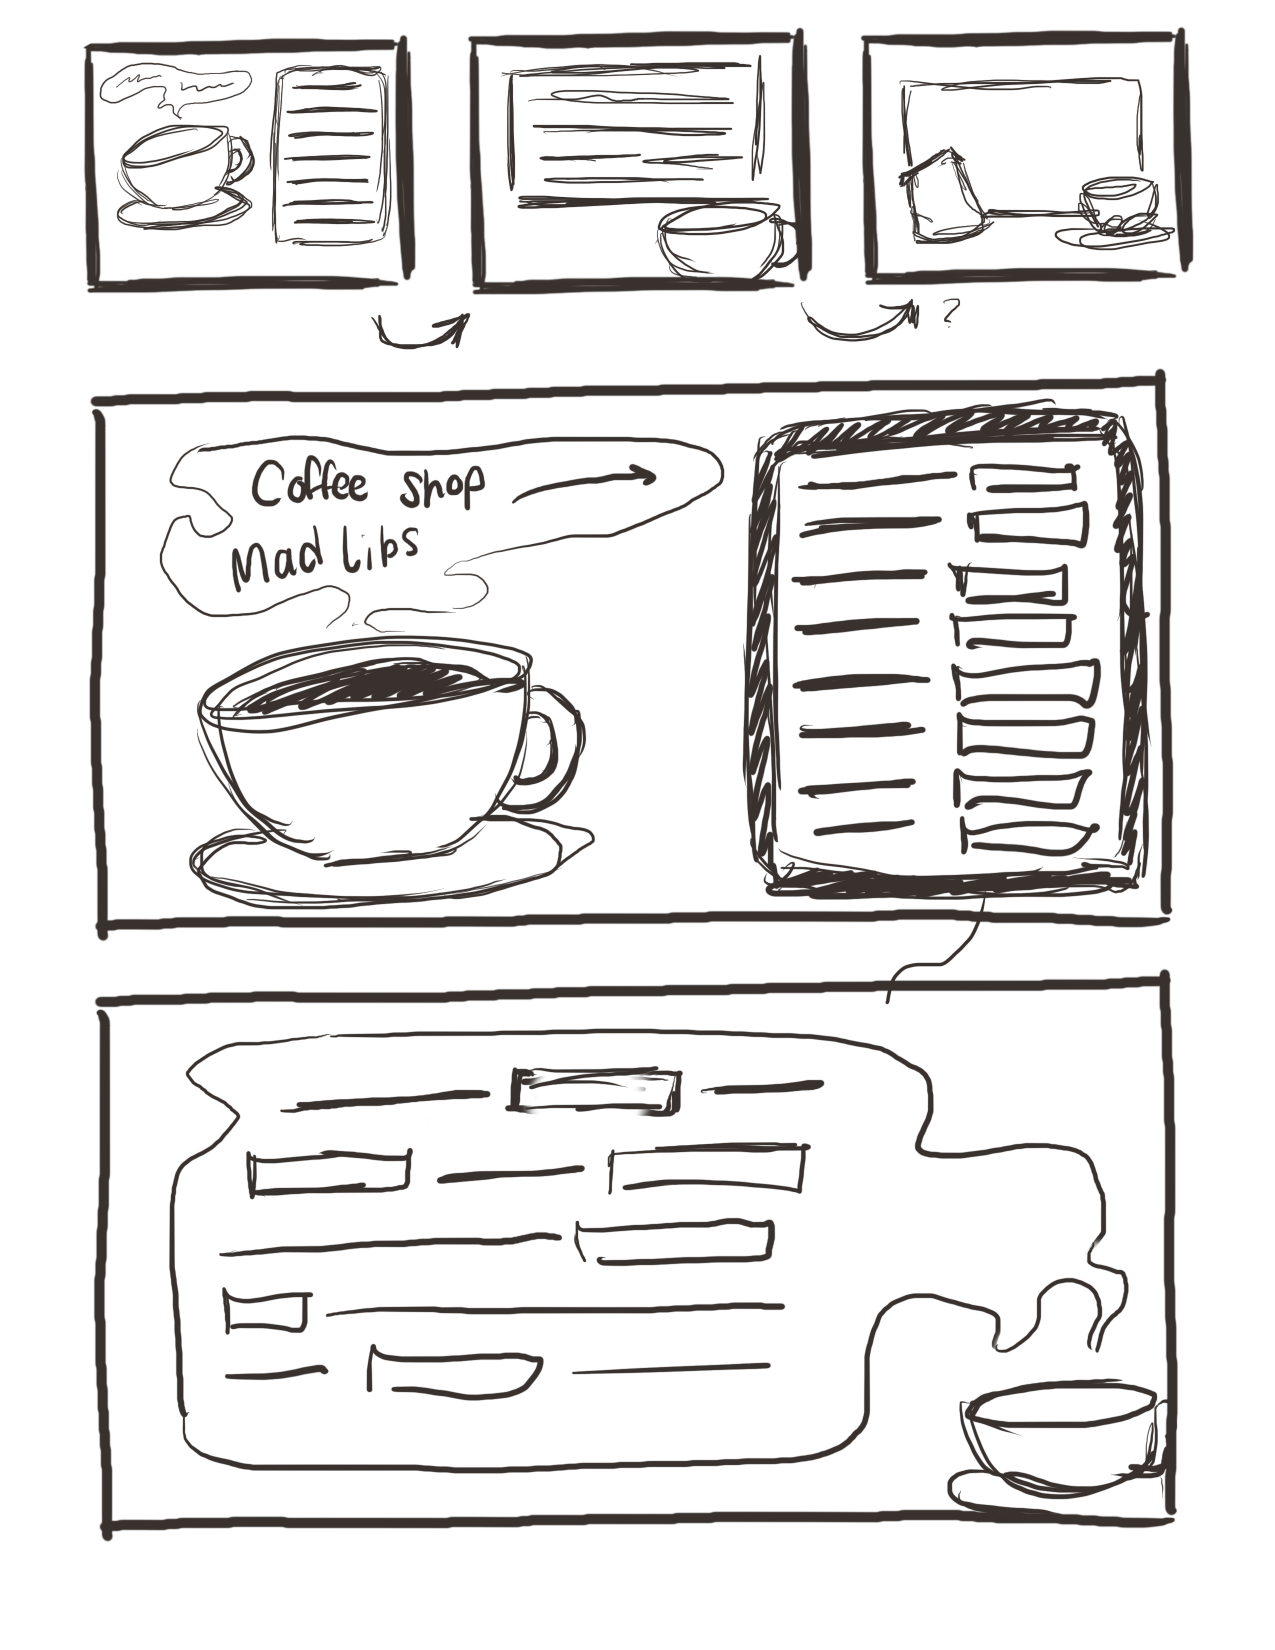 ?
Coffee shop
Mad Libs